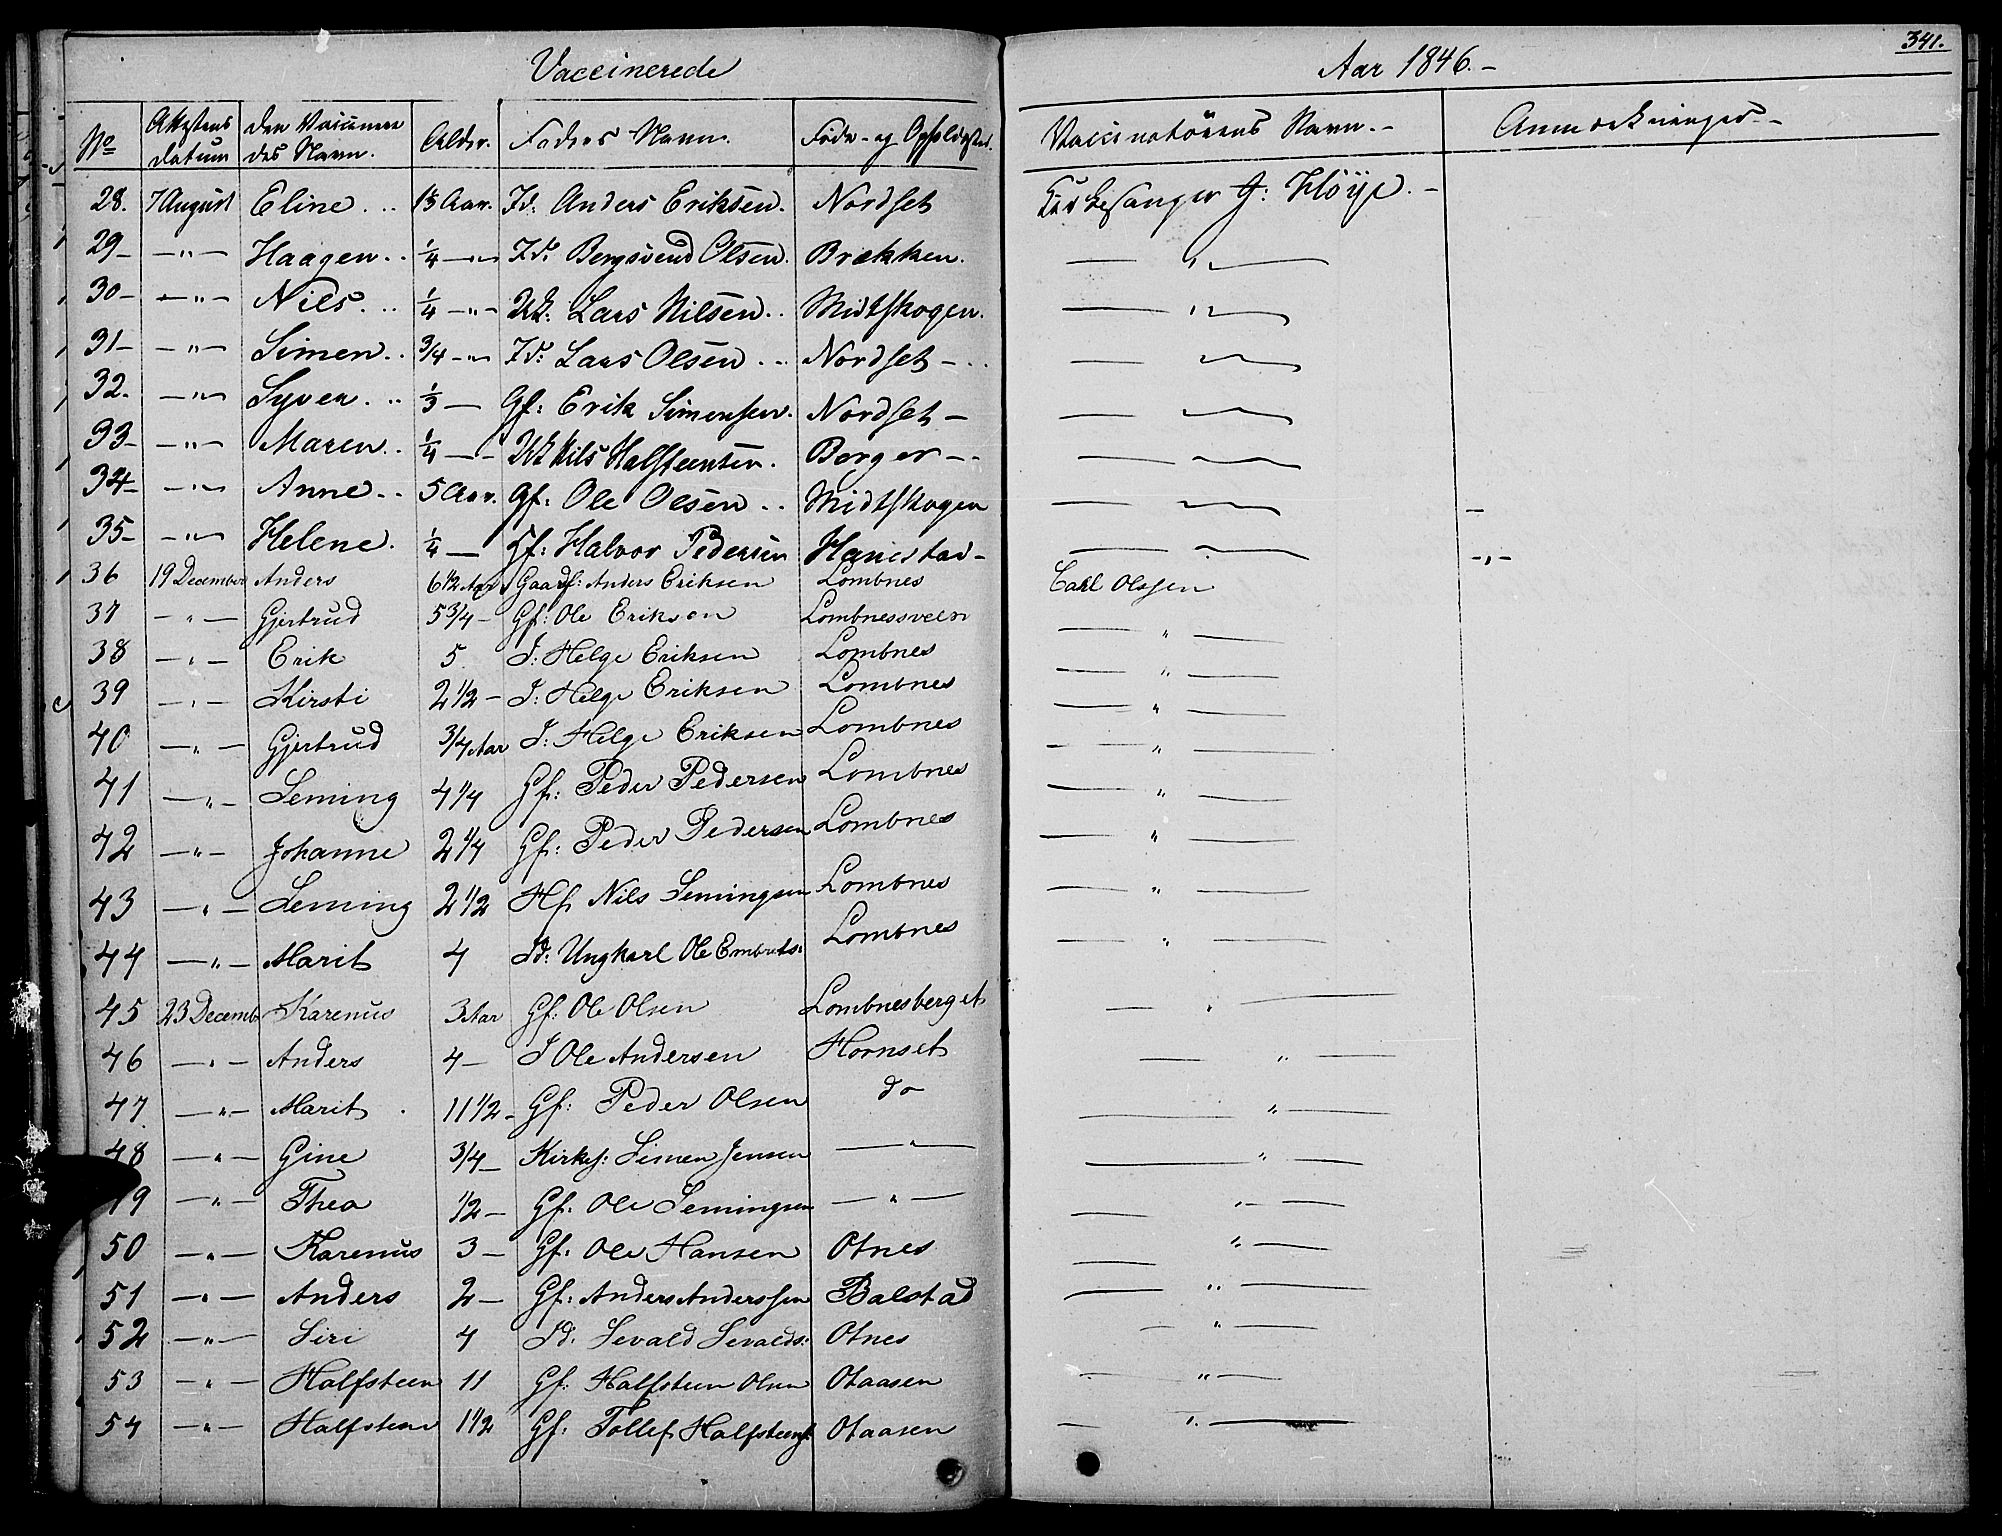 341.
Vaccinerede Aar 1846. –
No Attestens Datum Den Vaccineredes Navn. Alder. Faders Navn. Føde- og Opholdssted. Vaccinatørens Navn. – Anmærkninger –
28. 7 August Eline . .. Id: Anders Eriksen. Nordset Kirkesanger J: Høye. –
29 – – " – Haagen . . 1/4 – " – Id: Bergsvend Olsen. Brækken. – " –
30 – – " – Nils . .. 1/4 – " – Lars Nilsen . . Midtskogen. – " –
31 – – " – Simen . . 3/4 – " – Id: Lars Olsen . .. Nordset – . . – " –
32. – " – Syver . .. 1/3 – Gf: Erik Simensen. Nordset – – " –
33 – – " – Maren . . 1/4 – – Nils Halfsteensen. Berger – - – " –
34 – – " – Anne . . 5 Aar. Gf: Ole Olsen . . Midtskogen – " –
35 – – " – Helene . 1/4 – Gf: Halvor Pedersen Hanestad – – " –
36 19 December Anders 6 1/2 Aar Gaardf: Anders Eriksen Lombnes Carl Olssen
37 – " – Gjertrud 5 3/4 – Gf: Ole Eriksen Lombnessveen – " –
38 – " – Erik 5 I: Helge Eriksen Lombnes – " –
39 – " – Kirsti 2 1/2 – I: Helge Eriksen Lombnes – " –
40 – " – Gjertrud 3/4 Aar I: Helge Eriksen Lombnes – " –
41 – " – Seming 4 1/4 Gf: Peder Pedersen Lombnes – " –
42 – " – Johanne 2 1/4 Gf: Peder Pedersen Lombnes – " –
43 – " – Seming 2 1/2 Hf Nils Semingsen Lombnes – " –
44 – " – Marit 4 Id: Ungkarl Ole Embrets: Lombnes – " –
45 23 Decemb Karenus 3 Aar Gf: Ole Olsen Lombnesberget – " –
46 – " – Anders 4 – I Ole Andersen Hornset – " –
47 – " – Marit . 11 1/2 – Gf: Peder Olsen do – " –
48 – " – Gine 3/4 – Kirkes: Simen Jensen – " – – " –
49 – " – Thea 1/2 – Gf: Ole Semingsen – " – – " –
50 – " – Karenus 3 – Gf: Ole Hansen Otnes – " –
51 – " – Anders 2 – Gf: Anders Anderssen Balstad – " –
52 – " – Siri 4 Id: Sevald Sevalds: Otnes – " –
53 – " – Halfsteen 11 Gf: Halfsteen Olsen Otaasen – " –
54 – " – Halfsteen 1 1/2 Gf: Tollef Halfsteens: Otaasen – " –